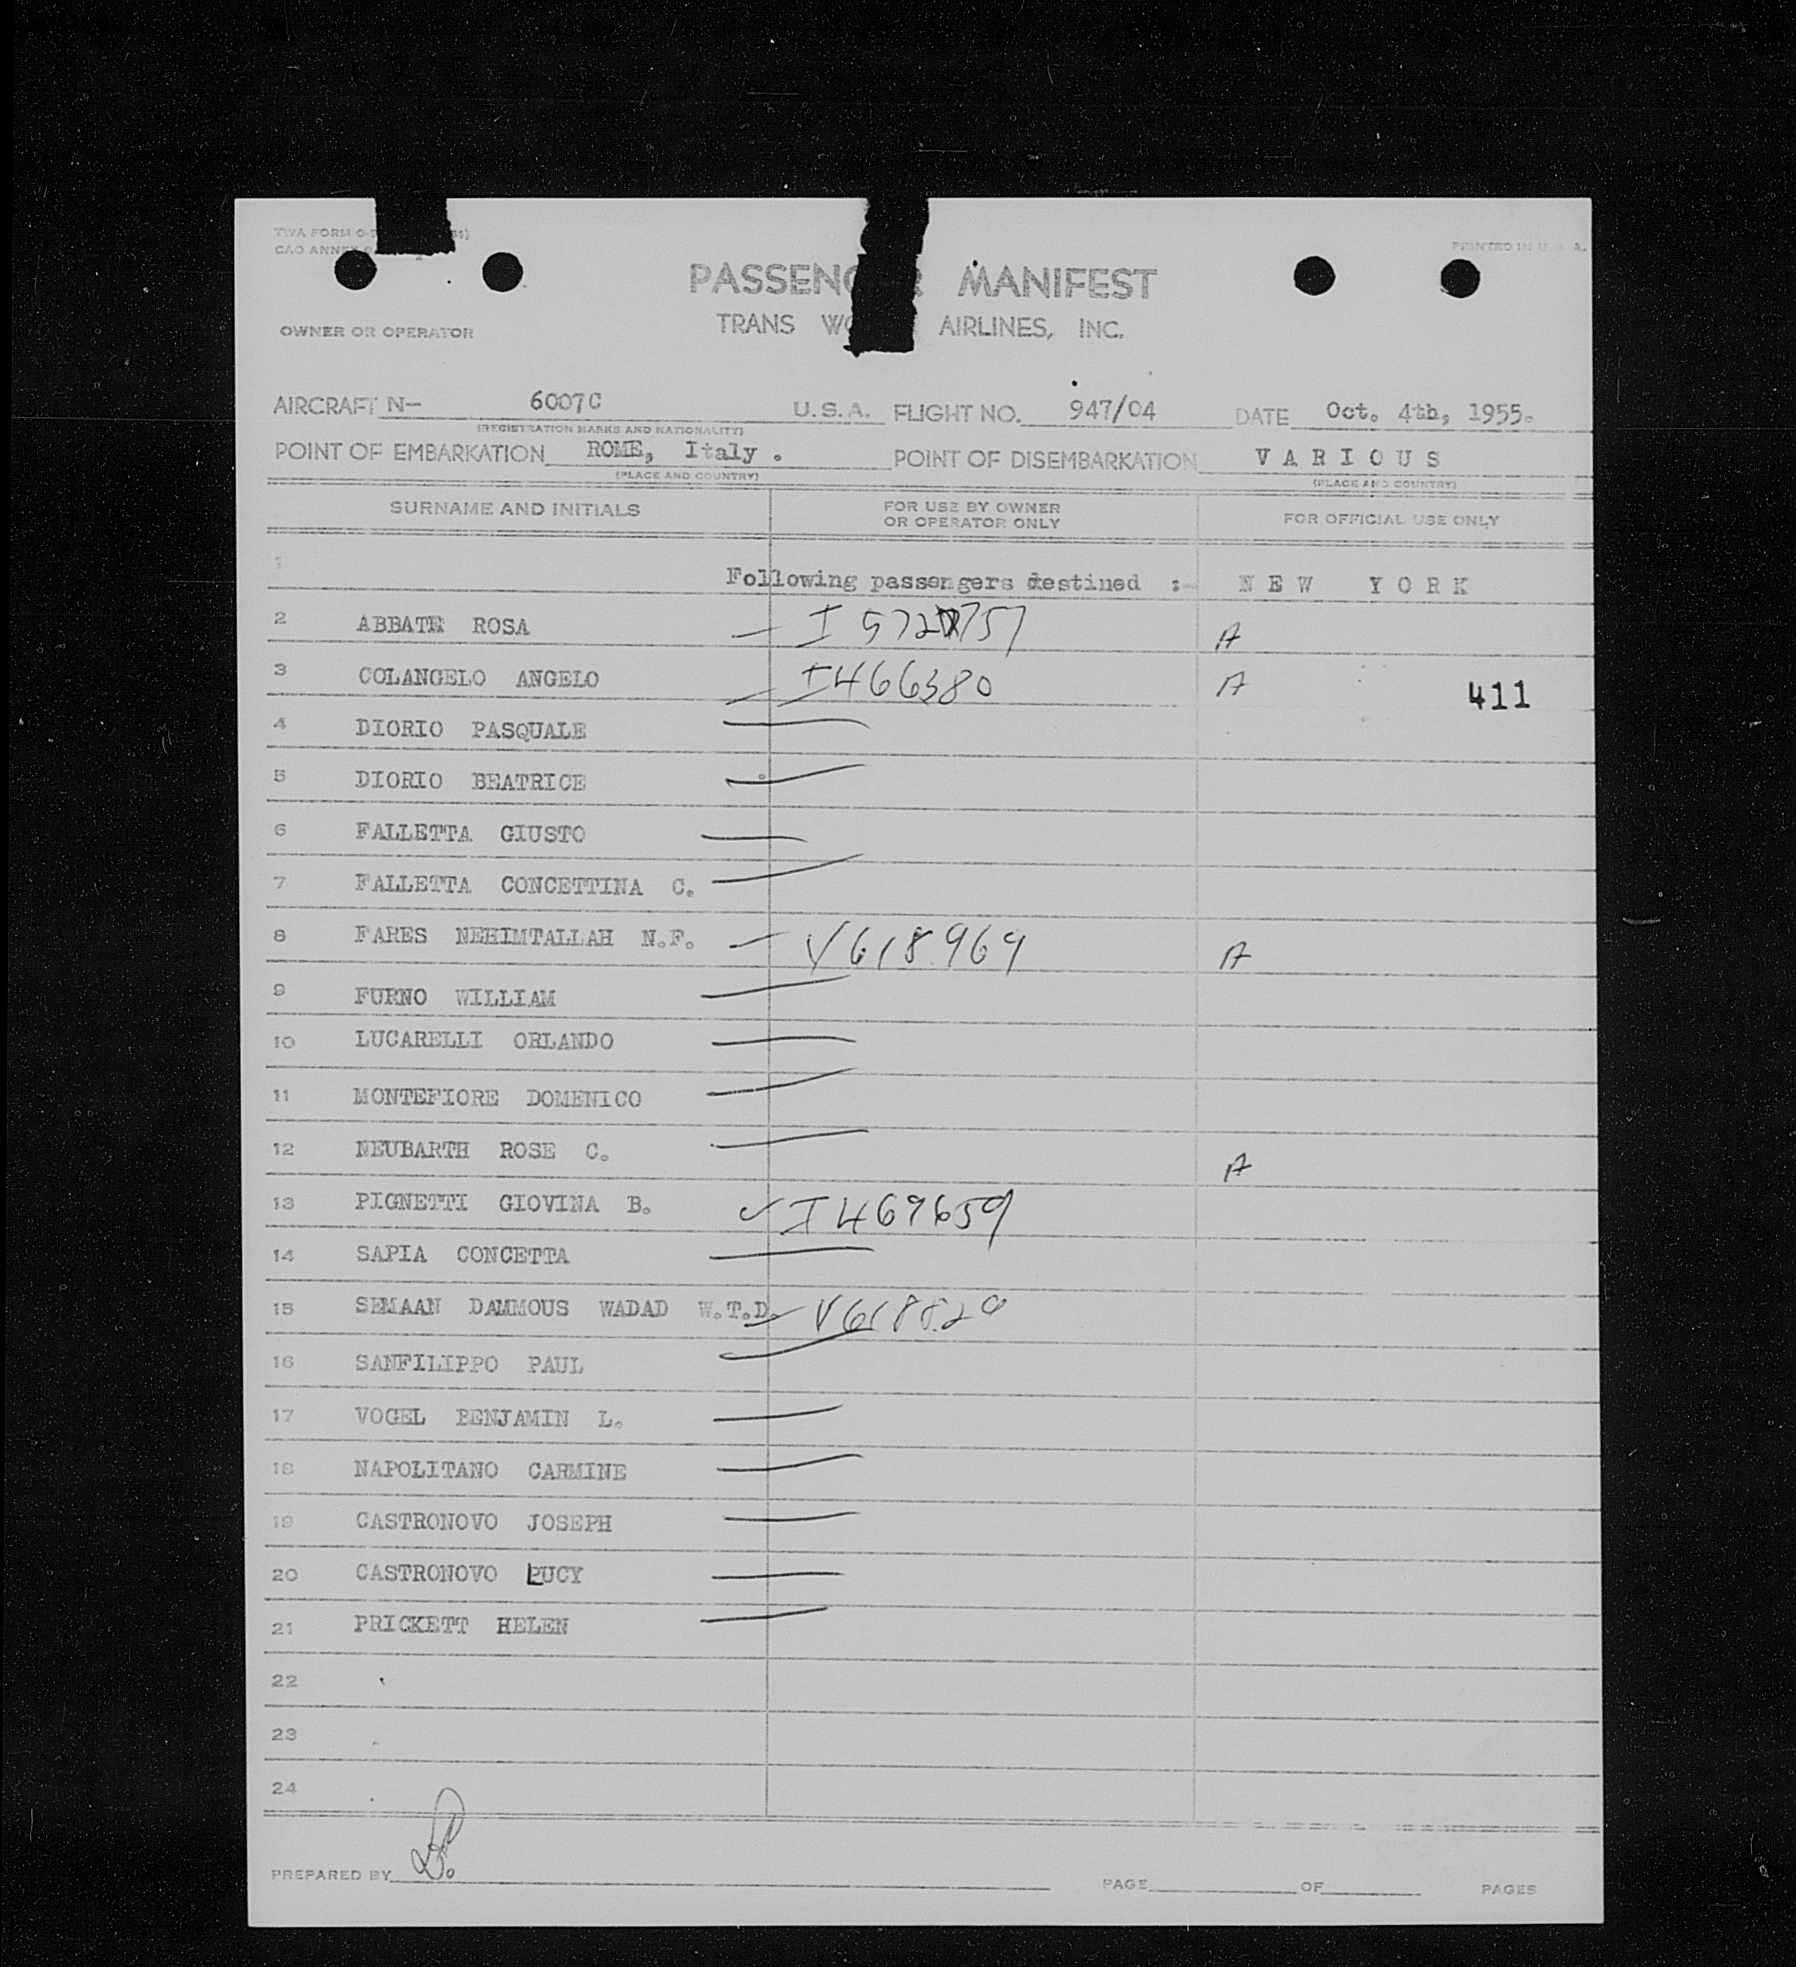 TWA FORM
CAO ANNEX
PRINTED IN U. S. A.
PASSENGER MANIFEST
TRANS WORLD AIRLINES, INC.
OWNER OR OPERATOR
AIRCRAFT N- 6007C U.S.A. FLIGHT NO. 947/04 DATE Oct. 4th, 1955.
(REGISTRATION MARKS AND NATIONALITY)
POINT OF EMBARKATION ROME, Italy . POINT OF DISEMBARKATION VARIOUS
(PLACE AND COUNTRY) (PLACE AND COUNTRY)
SURNAME AND INITIALS FOR USE BY OWNER OR OPERATOR ONLY FOR OFFICIAL USE ONLY
1 Following passengers destined :- NEW YORK
2 ABBATE ROSA I 572757 A
3 COLANGELO ANGELO I466380 A 411
4 DIORIO PASQUALE
5 DIORIO BEATRICE
6 FALLETTA GIUSTO
7 FALLETTA CONCETTINA C.
8 FARES NEHIMTALLAH N.F. V618969 A
9 FURNO WILLIAM
10 LUCARELLI ORLANDO
11 MONTEFIORE DOMENICO
12 NEUBARTH ROSE C. A
13 PIGNETTI GIOVINA B. I469659
14 SAPIA CONCETTA
15 SEMAAN DAMMOUS WADAD W.T.D. V618820
16 SANFILIPPO PAUL
17 VOGEL BENJAMIN L.
18 NAPOLITANO CARMINE
19 CASTRONOVO JOSEPH
20 CASTRONOVO LUCY
21 PRICKETT HELEN
22
23
24
PREPARED BY PAGE OF PAGES